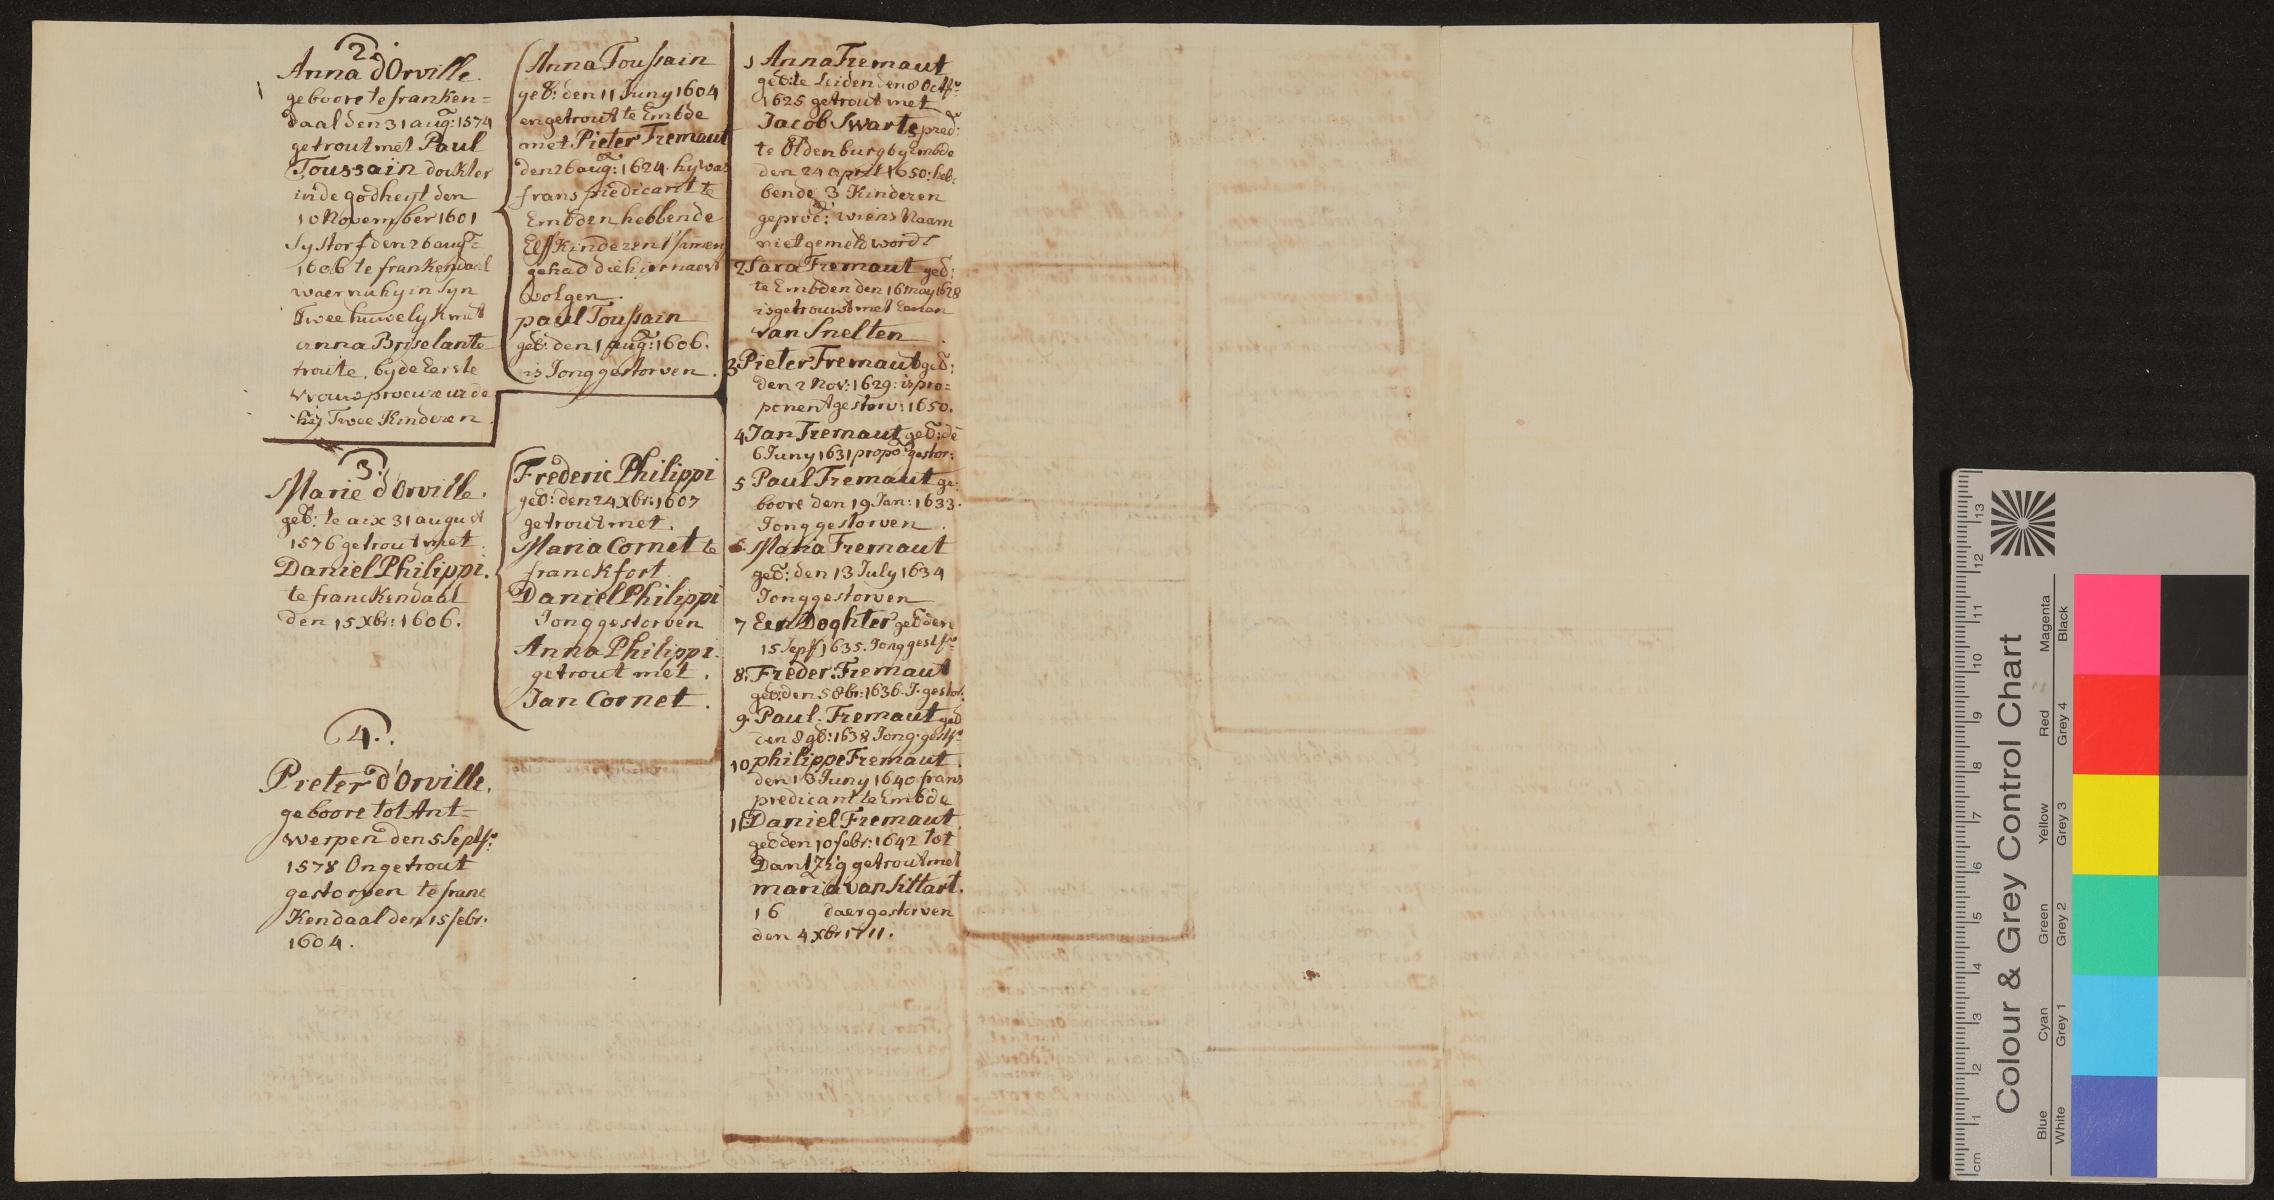 2.
Anna d'Orville.
geboore te franken=
daal den 31 aug: 1574
getrout met Paul
Toussain dockter
in de godheyt den
10 November 1601
sy storf den 26 aug:
1606 te frankendaal
waer nu hy in syn
Twee huwelyk met
anna Briselante
troute, by de Eerste
vrouw procureurde
hij Twee Kinderen.
3.
Marie d'Orville.
geb: te aix 31 august
1576 getrout met
Daniel Philippi.
te franckendaal
den 15 xbr: 1606.
4.
Pieter d'Orville.
geboore tot Ant=
werpen den 5 Septr:
1578 Ongetrout
gestorven te franc
Kendaal den 15 febr:
1604.
Anna Toussain
geb: den 11 Juny 1604
en getrout te Embde
met Pieter Fremaut
den 26 aug: 1624. hy was
frans predicant te
Embden hebbende
Elff Kinderen t'samen
gehad die hier naer
volgen.
paul Toussain
geb: den 1 aug: 1606.
is Jong gestorven.
Frederic Philippi
geb: den 24 xbr: 1607
getrout met.
Maria Cornet te
franckfort
Daniel Philippi
Jong gestorven
Anna Philippi.
getrout met.
Jan Cornet.
1 Anna Fremaut
geb: te Leiden den 8 Octr:
1625 getrout met
Jacob Swarte pred:
te Oldenburg by Embde
den 24 april 1650: heb:
bende 3 Kinderen
geproc: wiens Naam
niet gemeld word
2 Sara Fremaut geb:
te Embden den 16 may 1628
is getrouwt met Eenen
Van Snelten.
3 Pieter Fremaut geb:
den 2 Nov: 1629: is pro=
ponent gestorv: 1650.
4 Jan Fremaut geb: de
6 Juny 1631 propo: gestor:
5 Paul Fremaut ge:
boore den 19 Jan: 1633.
Jong gestorven.
6. Maria Fremaut
geb: den 13 July 1634
Jong gestorven
7 Een Doghter geb den
15 Sept 1635. Jong gestr:
8. Freder: Fremaut
geb: den 5 8br: 1636. J. gestor.
9. Paul. Fremaut geb
den 8 9b: 1638 Jong. gestr:
10 philippe Fremaut.
den 13 Juny 1640 frans
predicant te Embde
11 Daniel Fremaut.
geb den 10 febr: 1642 tot
Dantzig getrout met
maria van Sittart.
16 daer gestorven
den 4 xbr 1711.
Colour & Grey Control Chart
Blue Cyan Green Yellow Red Magenta
White Grey 1 Grey 2 Grey 3 Grey 4 Black
cm 1 2 3 4 5 6 7 8 9 10 11 12 13